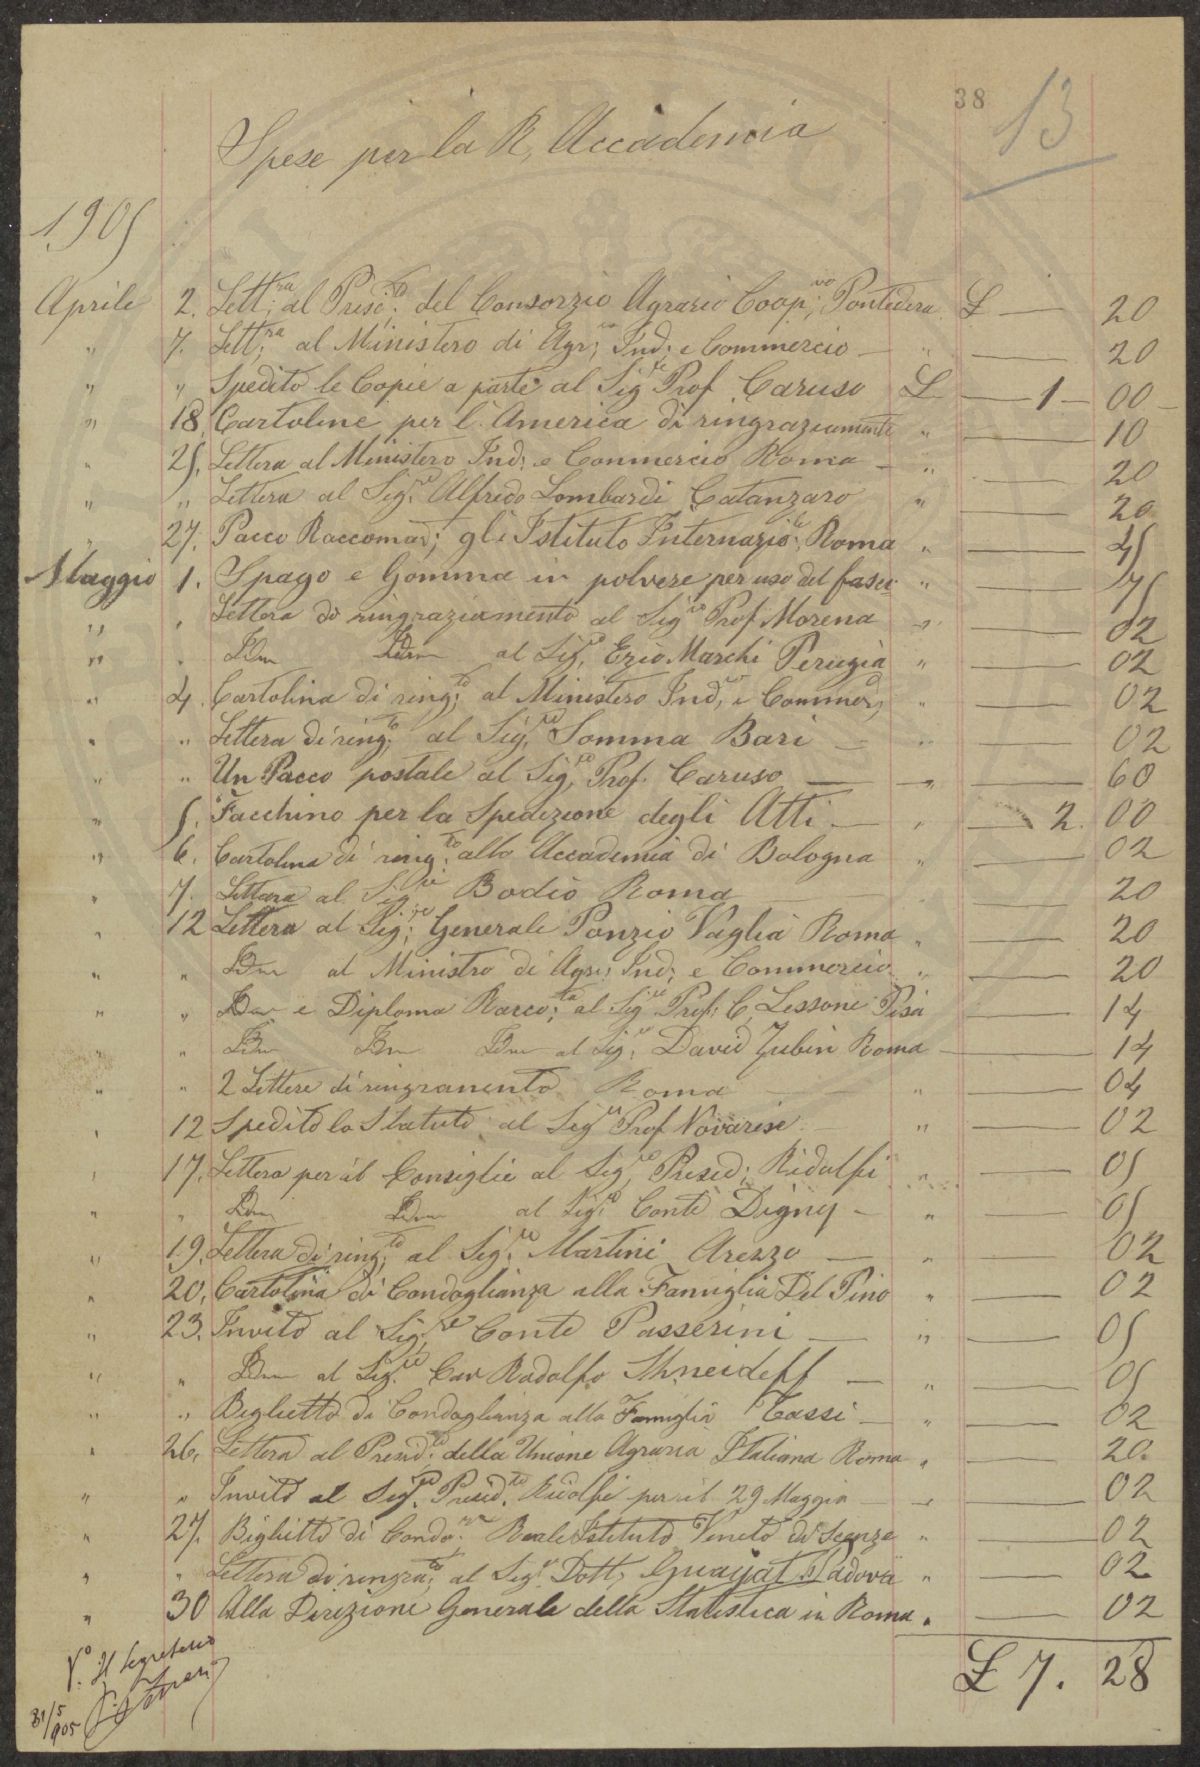 38
13
Spese per la R. Accademia
1905
Aprile 2. Lett.ra al Presid.te del Consorzio Agrario Coop.vo Pontedera £ — 20
" 7. Lett.ra al Ministero di Agr.; Ind. e Commercio — " — 20
" " Spedito le Copie a parte al Sig.re Prof Caruso £ — 1 — 00
" 18. Cartoline per l'America di ringraziamento " — 10
" 25. Lettera al Ministero Ind. e Commercio Roma — " — 20
" " Lettera al Sig.re Alfredo Lombardi Catanzaro " — 20
" 27. Pacco Raccomad; gli Istituto Internazio.le Roma " — 45
Maggio 1. Spago e Gomma in polvere per uso del fasci " — 75
" " Lettera di ringraziamento al Sig.re Prof Morena " — 02
" " Idm Idm al Sig.re Ezio Marchi Perugia " — 02
" 4. Cartolina di ring.to al Ministero Ind. e Commer. " — 02
" " Lettera di ring.to al Sig.re Somma Bari — " — 02
" " Un Pacco postale al Sig.re Prof. Caruso — " — 60
" 5. Facchino per la Spedizione degli Atti — " — 2. 00
" 6. Cartolina di ring.to alla Accademia di Bologna " — 02
" 7. Lettera al Sig.re Bodio Roma — 20
" 12 Lettera al Sig.re Generale Ponzio Vaglia Roma " — 20
" " Idm al Ministro di Agri; Ind; e Commercio " — 20
" " Idm e Diploma Racco.ta al Sig.re Prof; C. Lessone Pisa — 14
" " Idm Idm Idm al Sig.re David Zubin Roma — 14
" " 2 Lettere di ringramento Roma " — 04
" 12 Spedito lo Statuto al Sig.re Prof Novarese — " — 02
" 17. Lettera per il Consiglio al Sig.re Presid; Ridolfi " — 05
" " Idm Idm al Sig.re Conte Digny — " — 05
" 19. Lettera di ring.to al Sig.re Martini Arezzo — " — 02
" 20. Cartolina di Condoglianza alla Famiglia Del Pino " — 02
" 23. Invito al Sig.re Conte Passerini — " — 05
" " Idm al Sig.re Cav Rodolfo Shneideff — " — 05
" " Biglietto di Condoglianza alla Famiglia Tassi — " — 02
" 26. Lettera al Presid.te della Unione Agraria Italiana Roma " — 20.
" " Invito al Sig.re Presid.te Ridolfi per il 29 Maggio — " — 02
" 27. Biglietto di Condo; Reale Istituto Veneto di Scenze " — 02
" " Lettera di ringra.to al Sig.re Dott; Guayat Padova " — 02
" 30 Alla Direzione Generale della Statistica in Roma. — 02
£ 7. 28
V.o Il Segretario
31/5 905